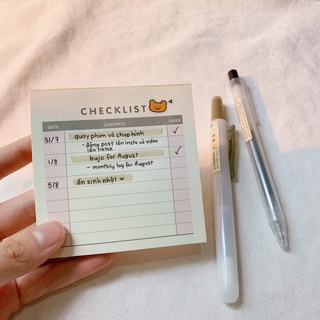 CHECKLIST
DATE CONTENTS CHECK
31/7 quay phim và chụp hình ✓
- đăng post lên insta và video
lên tiktok
1/8 bujo for August ✓
- monthly log for August
5/8 ăn sinh nhật